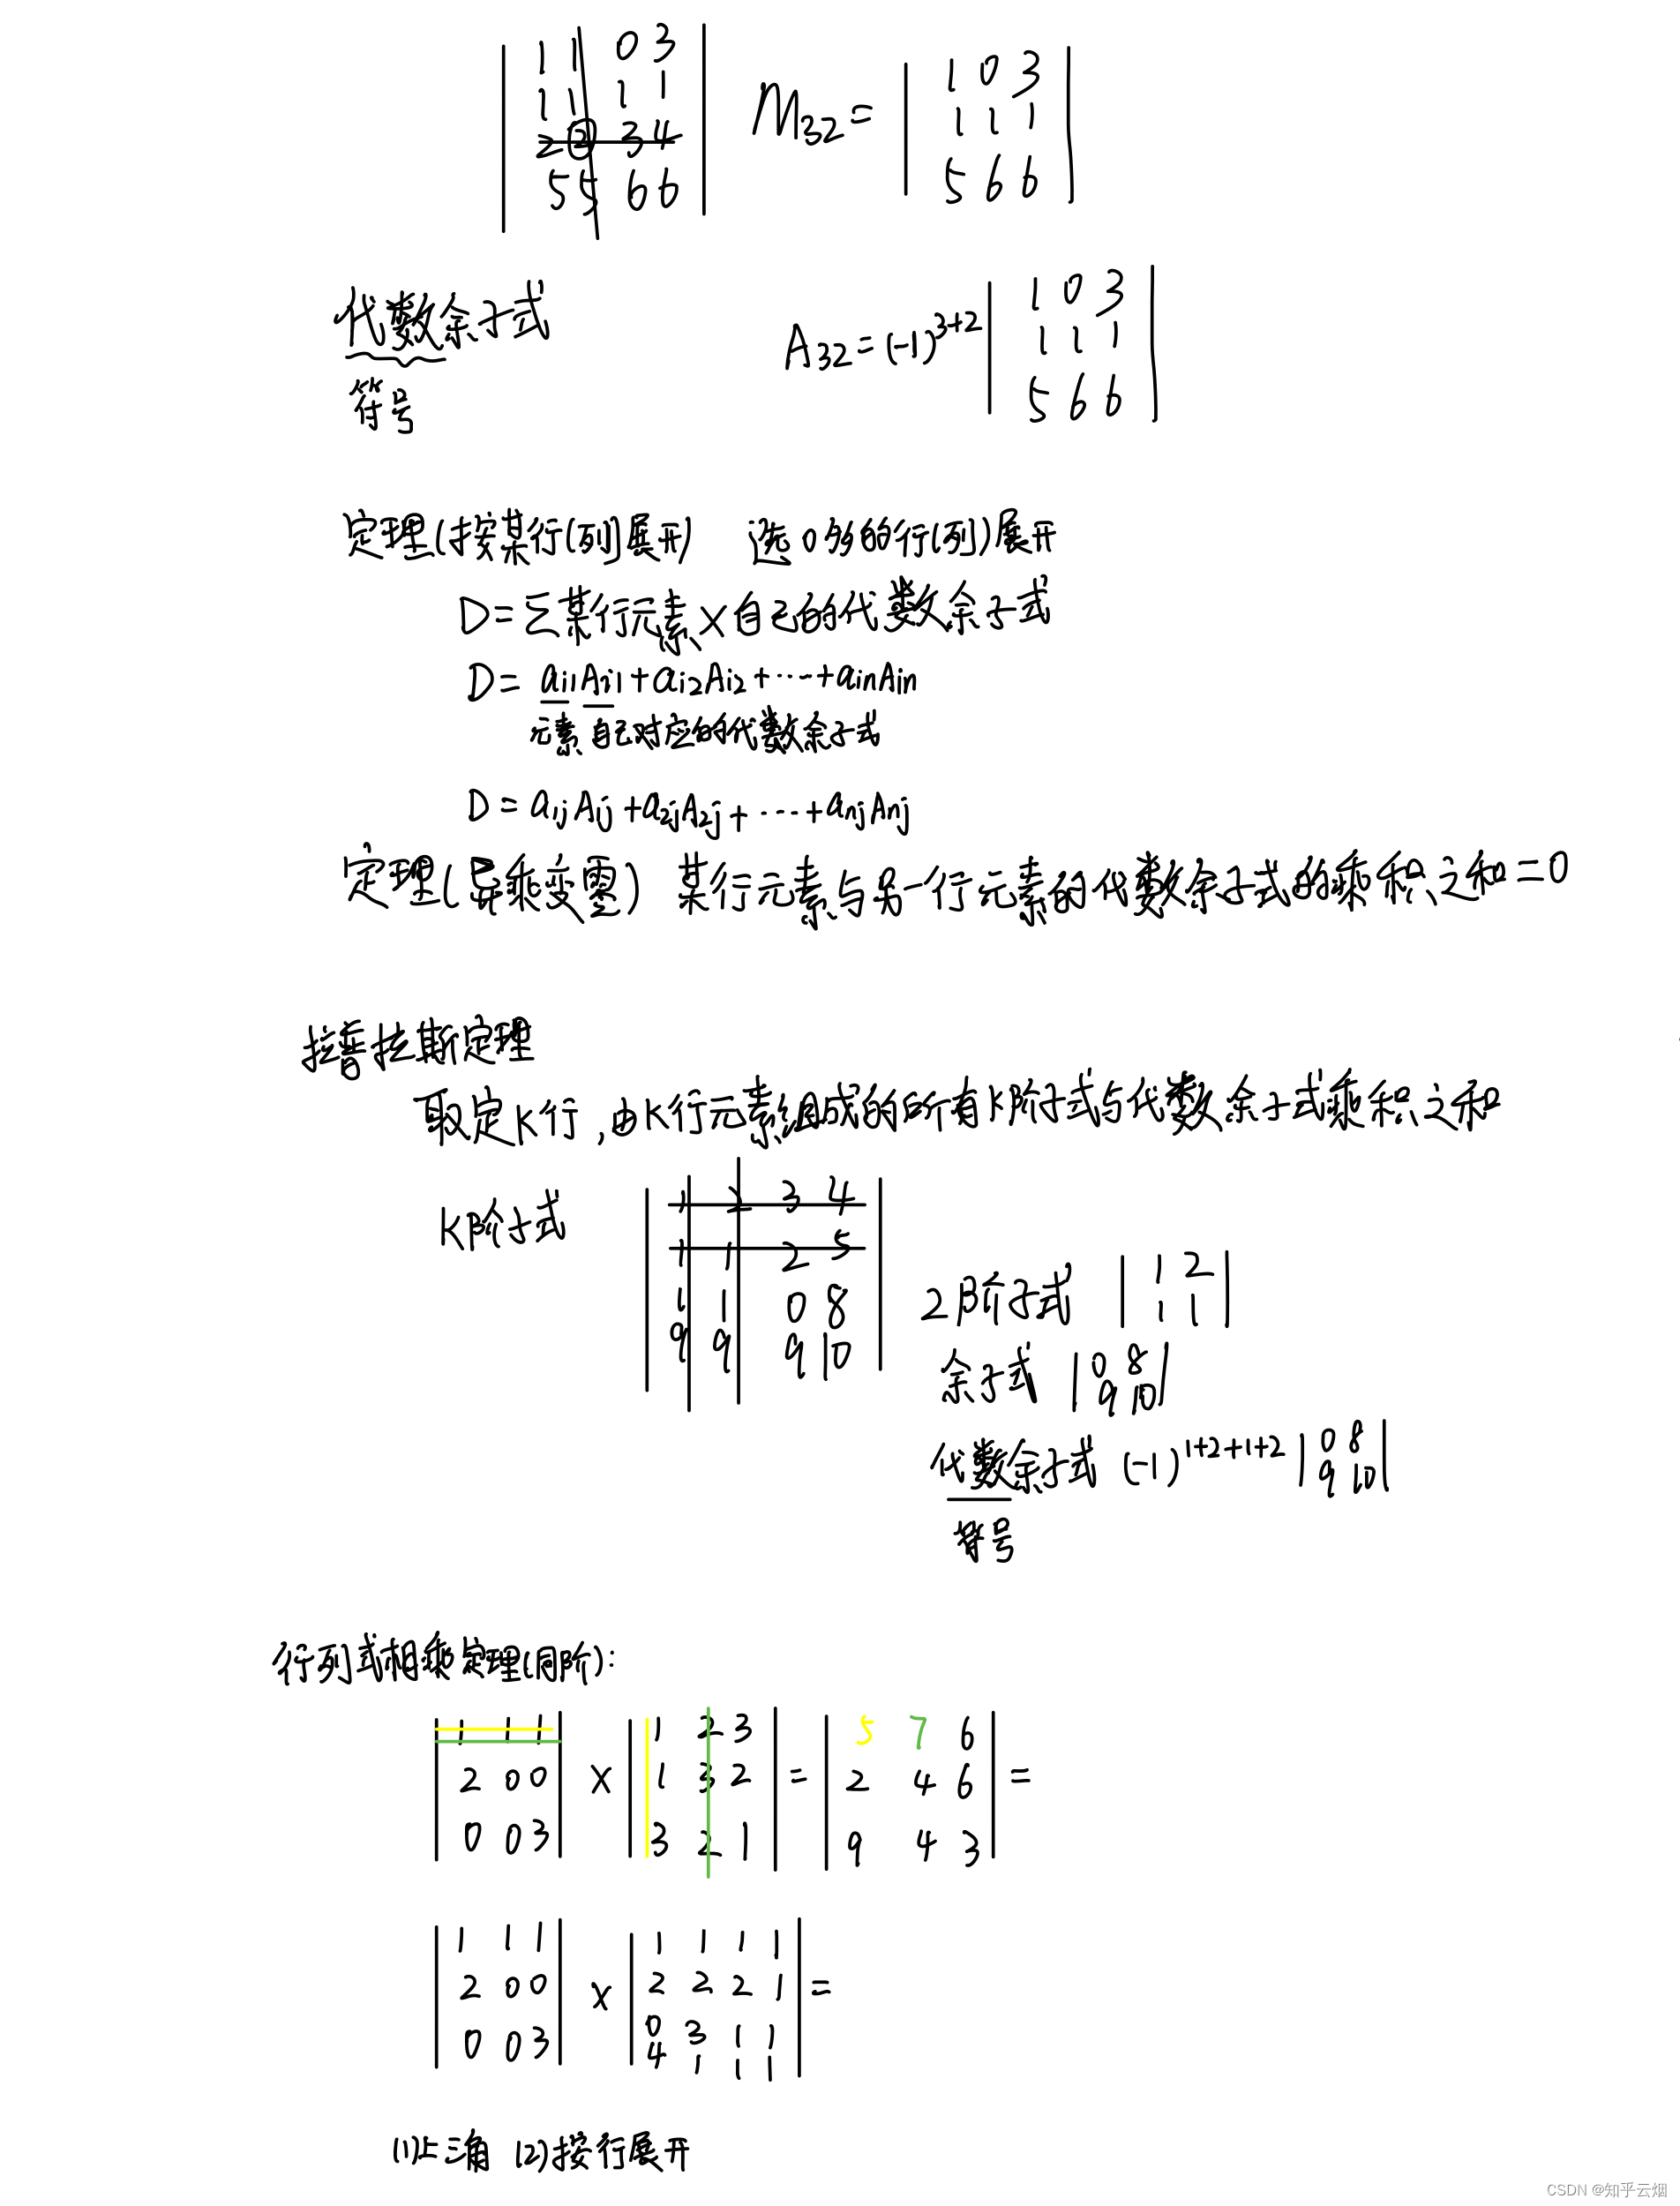 | 1 1 0 3 |
| 1 1 1 1 |
| 2 2 3 4 |
| 5 5 6 6 |
M32 = | 1 0 3 |
| 1 1 1 |
| 5 6 6 |
代数余子式
符号
A32 = (-1)^3+2 | 1 0 3 |
| 1 1 1 |
| 5 6 6 |
定理(按某行(列)展开) 选0多的行(列)展开
D = Σ某行元素×自己的代数余子式
D = ai1Ai1 + ai2Ai2 + ⋯ + ainAin
元素 自己对应的代数余子式
D = a1jA1j + a2jA2j + ⋯ + anjAnj
定理(异乘变零) 某行元素与另一行元素的代数余子式的乘积之和=0
拉普拉斯定理
取定K行,由K行元素组成的所有K阶子式与代数余子式乘积之和
K阶子式
| 1 2 3 4 |
| 1 1 2 5 |
| 1 1 0 8 |
| 9 9 9 10 |
2阶子式 | 1 2 |
| 1 1 |
余子式 | 0 8 |
| 9 10 |
代数余子式 (-1)^1+2+1+2 | 0 8 |
| 9 10 |
符号
行列式相乘定理(同阶):
| 1 1 1 | | 1 2 3 | | 5 7 6 |
| 2 0 0 | × | 1 3 2 | = | 2 4 6 | =
| 0 0 3 | | 3 2 1 | | 9 4 3 |
| 1 1 1 | | 1 1 1 1 |
| 2 0 0 | × | 2 2 2 1 | =
| 0 0 3 | | 0 3 1 1 |
| 4 1 1 1 |
(1)上三角 (2)按行展开
CSDN @知乎云烟